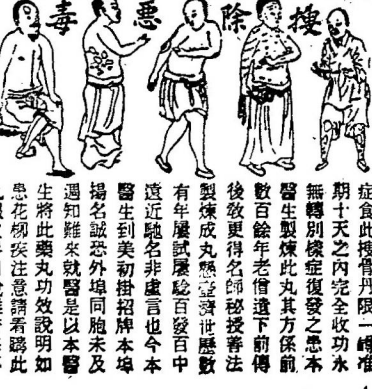 搜除惡毒
症食此搜骨丹限一准
期十天之內完全收功永
無轉別樣症復發之患本
醫生製煉此丸其方係前
數百餘年老僧遺下前傳
後教更得名師秘授善法
製煉成丸懸壺濟世歷數
有年屢試屢驗百發百中
遠近馳名非虛言也今本
醫生到美初掛招牌本埠
揚名誠恐外埠同胞未及
週知難來就醫是以本醫
生將此藥丸功效說明如
患花柳疾注意請看聽此